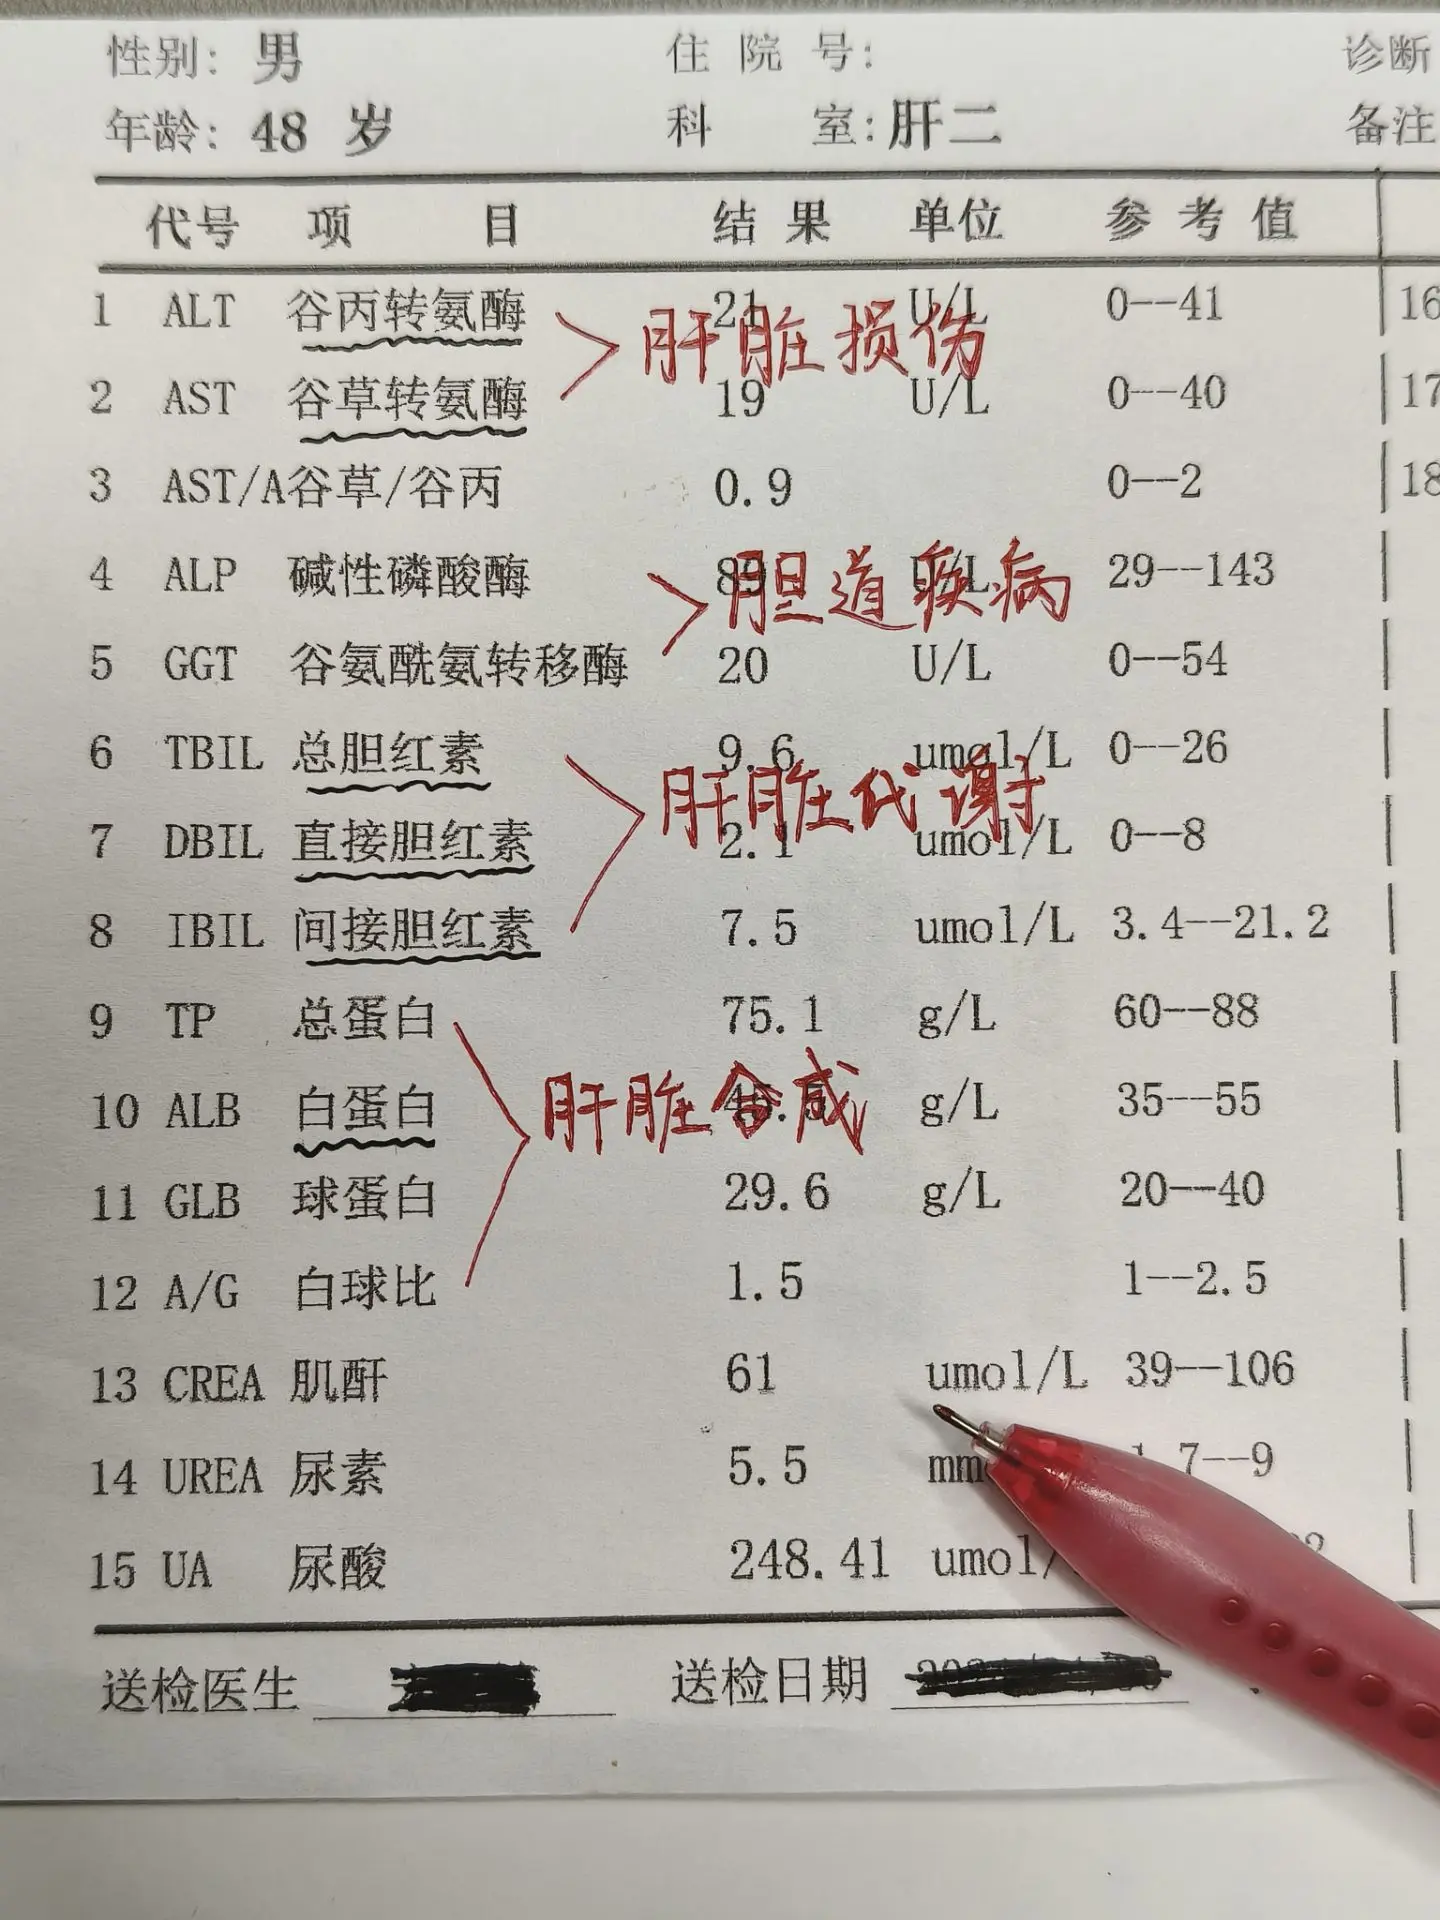 性别: 男 住 院 号: 诊断
年龄: 48 岁 科 室: 肝二 备注
代号 项 目 结 果 单位 参 考 值
1 ALT 谷丙转氨酶 21 U/L 0--41 16
肝脏损伤
2 AST 谷草转氨酶 19 U/L 0--40 17
3 AST/A谷草/谷丙 0.9 0--2 18
4 ALP 碱性磷酸酶 89 U/L 29--143
胆道疾病
5 GGT 谷氨酰氨转移酶 20 U/L 0--54
6 TBIL 总胆红素 9.6 umol/L 0--26
肝脏代谢
7 DBIL 直接胆红素 2.1 umol/L 0--8
8 IBIL 间接胆红素 7.5 umol/L 3.4--21.2
9 TP 总蛋白 75.1 g/L 60--88
肝脏合成
10 ALB 白蛋白 45.5 g/L 35--55
11 GLB 球蛋白 29.6 g/L 20--40
12 A/G 白球比 1.5 1--2.5
13 CREA 肌酐 61 umol/L 39--106
14 UREA 尿素 5.5 7--9
15 UA 尿酸 248.41 umol/
送检医生 送检日期